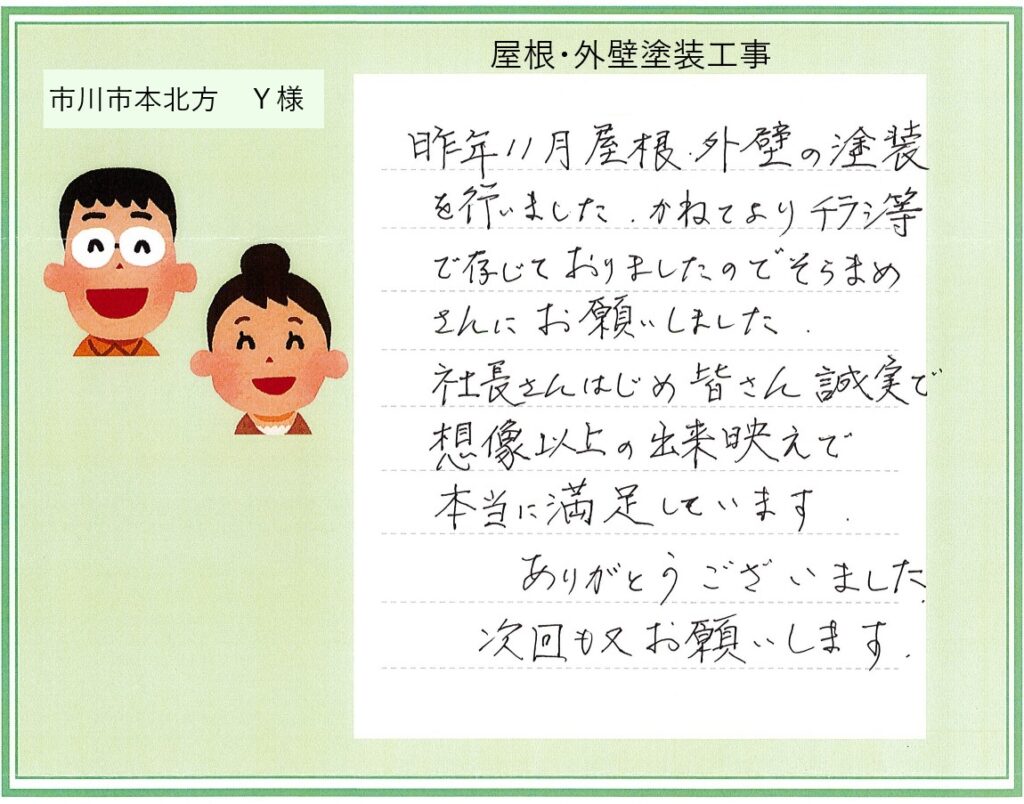 屋根・外壁塗装工事
市川市本北方　Y様
昨年11月屋根.外壁の塗装
を行いました.かねてよりチラシ等
で存じておりましたのでそらまめ
さんにお願いしました.
社長さんはじめ皆さん誠実で
想像以上の出来映えで
本当に満足しています.
ありがとうございました
次回も又お願いします.